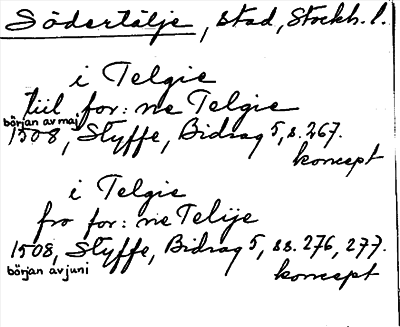 Södertälje, stad, Stockh. l.
i Telgie
tiil for: ne Telgie
början av maj
1508, Styffe, Bidrag 5, s. 267.
koncept
i Telgie
fro for: ne Telije
1508, Styffe, Bidrag 5, ss. 276, 277.
början av juni
koncept